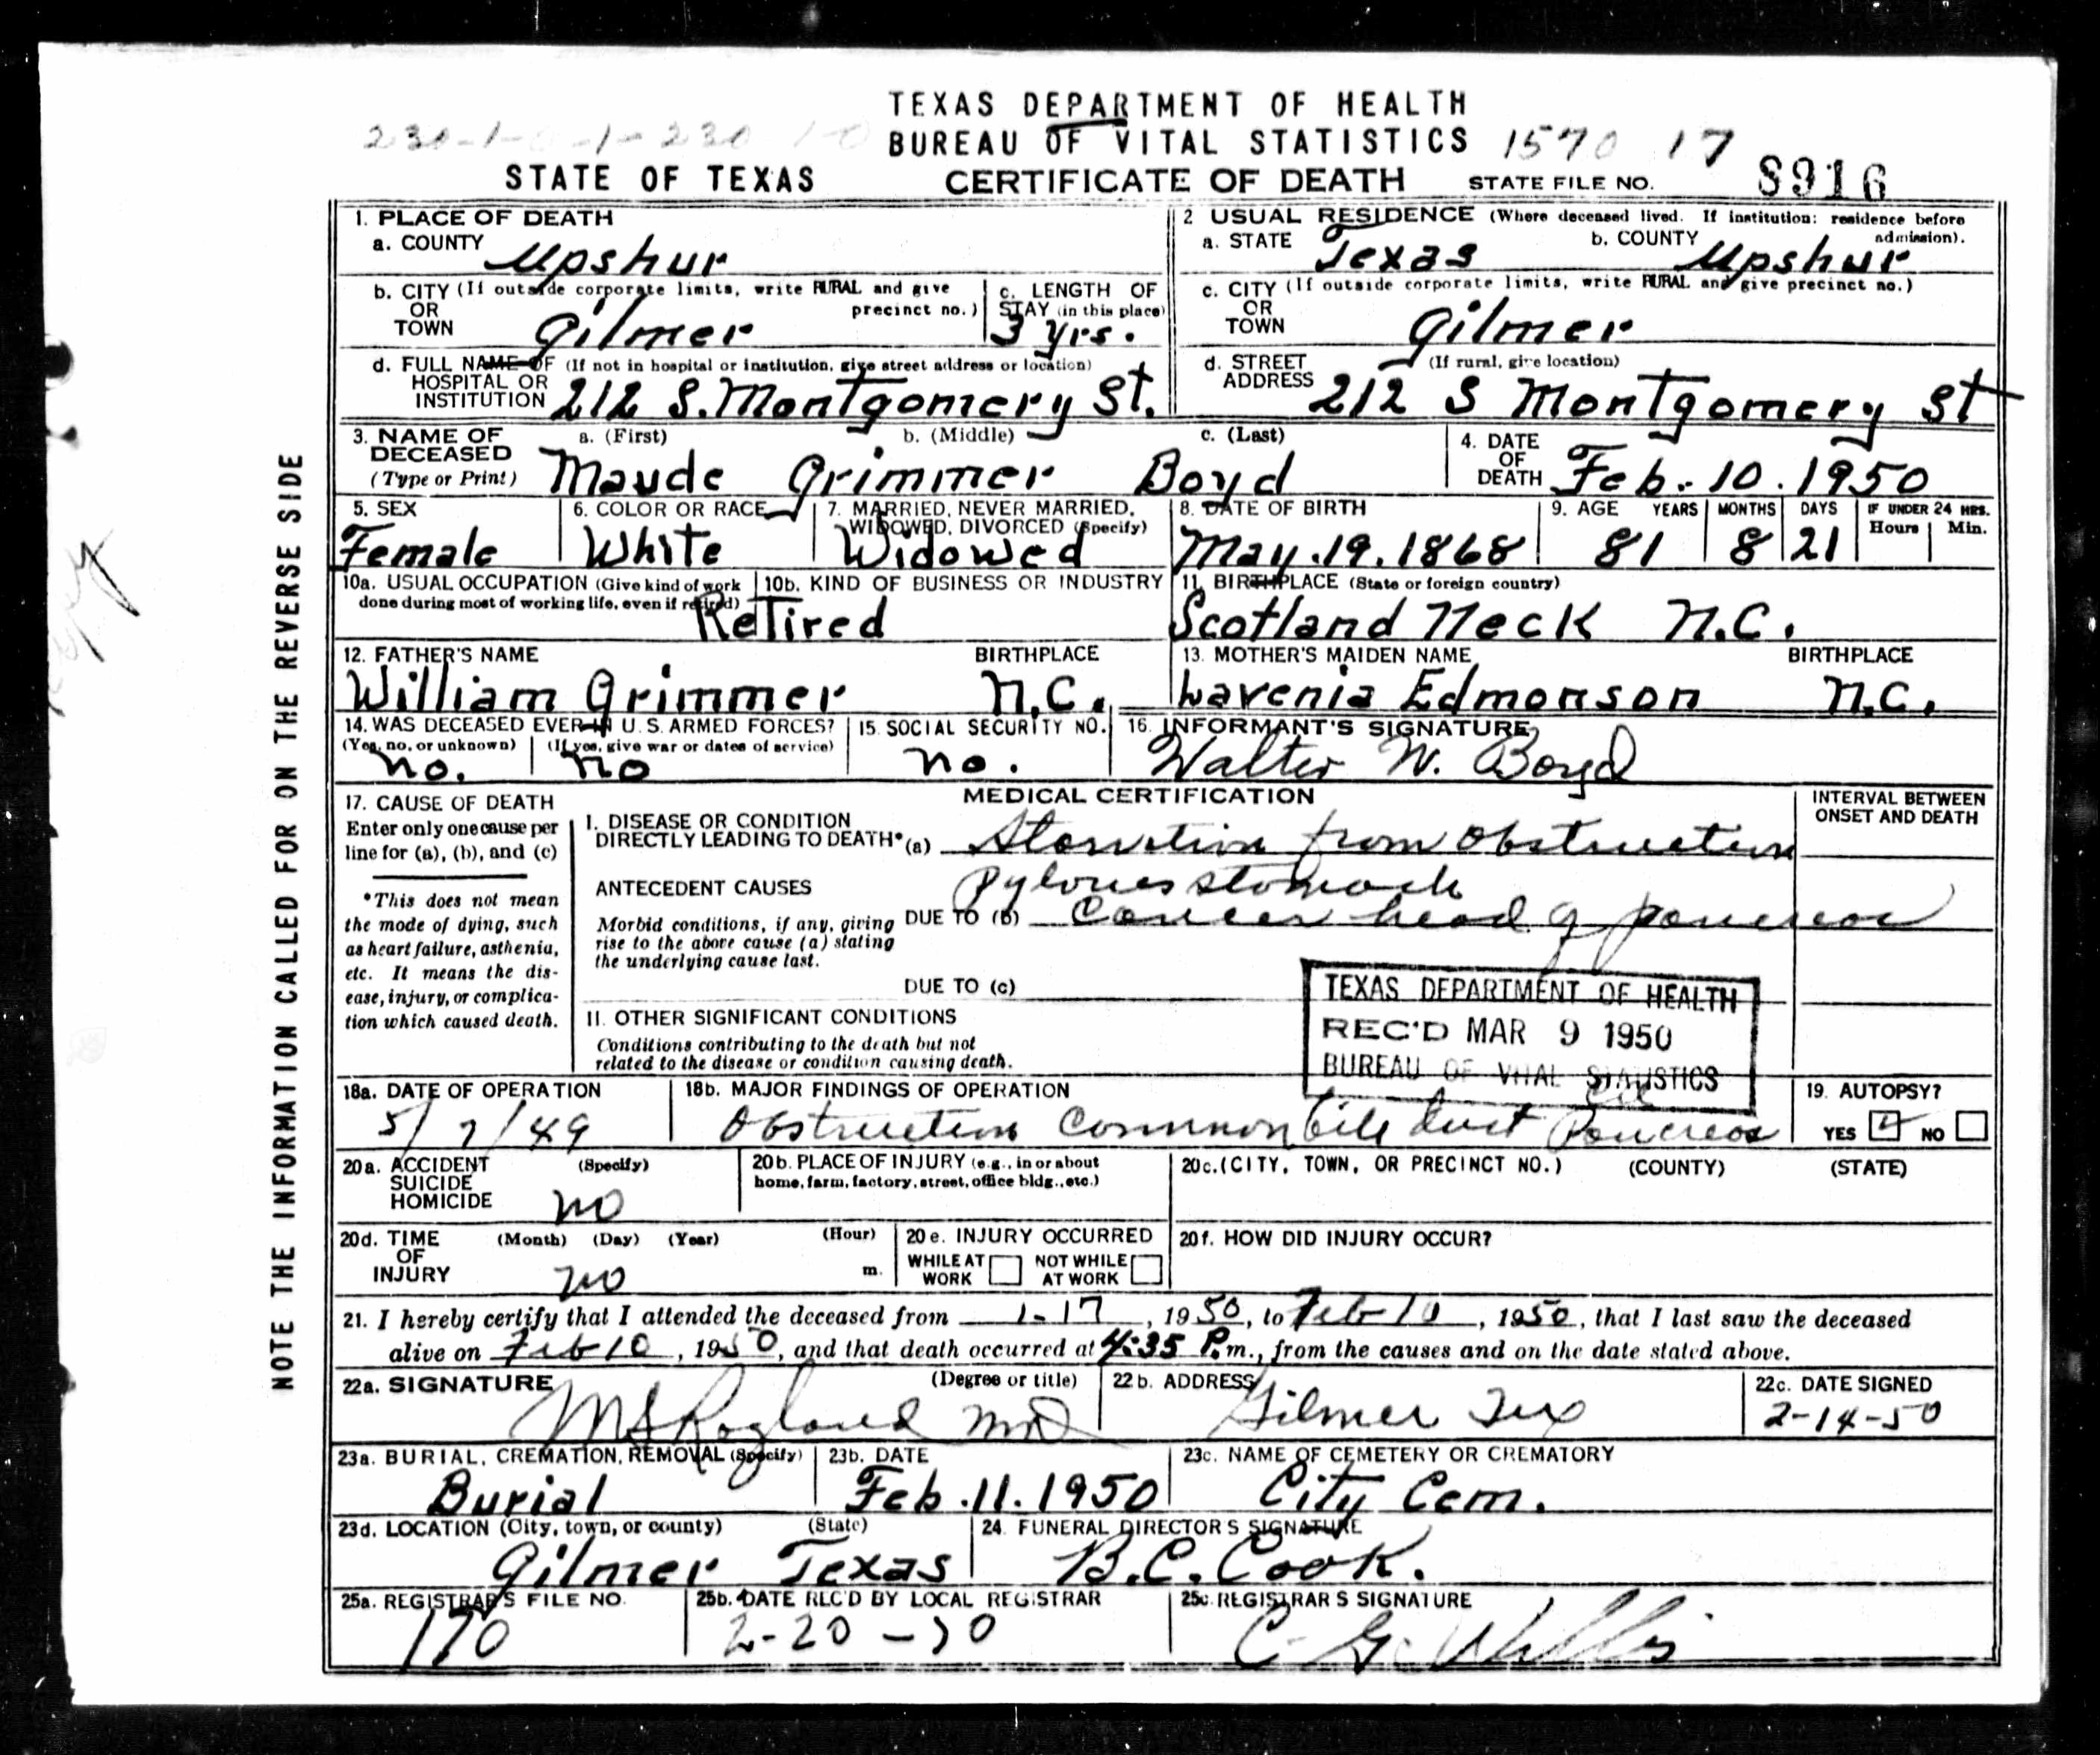 TEXAS DEPARTMENT OF HEALTH
BUREAU OF VITAL STATISTICS 1570 17
STATE OF TEXAS CERTIFICATE OF DEATH STATE FILE NO. 8916
NOTE THE INFORMATION CALLED FOR ON THE REVERSE SIDE
1. PLACE OF DEATH
a. COUNTY Upshur
2 USUAL RESIDENCE (Where deceased lived. If institution: residence before admission).
a. STATE Texas b. COUNTY Upshur
b. CITY (If outside corporate limits, write RURAL and give precinct no.)
OR
TOWN Gilmer
c. LENGTH OF
STAY (in this place)
3 yrs.
c. CITY (If outside corporate limits, write RURAL and give precinct no.)
OR
TOWN Gilmer
d. FULL NAME OF (If not in hospital or institution, give street address or location)
HOSPITAL OR
INSTITUTION 212 S. Montgomery St.
d. STREET (If rural, give location)
ADDRESS 212 S Montgomery St
3. NAME OF a. (First) b. (Middle) c. (Last)
DECEASED
(Type or Print) Maude Grimmer Boyd
4. DATE
OF
DEATH Feb. 10. 1950
5. SEX
Female
6. COLOR OR RACE
White
7. MARRIED, NEVER MARRIED,
WIDOWED, DIVORCED (Specify)
Widowed
8. DATE OF BIRTH
May. 19. 1868
9. AGE YEARS MONTHS DAYS IF UNDER 24 HRS.
Hours Min.
81 8 21
10a. USUAL OCCUPATION (Give kind of work
done during most of working life, even if retired)
10b. KIND OF BUSINESS OR INDUSTRY
Retired
11. BIRTHPLACE (State or foreign country)
Scotland Neck N.C.
12. FATHER'S NAME BIRTHPLACE
William Grimmer N.C.
13. MOTHER'S MAIDEN NAME BIRTHPLACE
Lavenia Edmonson N.C.
14. WAS DECEASED EVER IN U.S. ARMED FORCES?
(Yes, no, or unknown) (If yes, give war or dates of service)
no. no
15. SOCIAL SECURITY NO.
no.
16. INFORMANT'S SIGNATURE
Walter W. Boyd
17. CAUSE OF DEATH
Enter only one cause per
line for (a), (b), and (c)
*This does not mean
the mode of dying, such
as heart failure, asthenia,
etc. It means the dis-
ease, injury, or complica-
tion which caused death.
MEDICAL CERTIFICATION
INTERVAL BETWEEN
ONSET AND DEATH
I. DISEASE OR CONDITION
DIRECTLY LEADING TO DEATH* (a) Starvation from Obstruction
Pylorus stomach
ANTECEDENT CAUSES
Morbid conditions, if any, giving
rise to the above cause (a) stating
the underlying cause last.
DUE TO (b) Cancer head of pancreas
DUE TO (c)
II. OTHER SIGNIFICANT CONDITIONS
Conditions contributing to the death but not
related to the disease or condition causing death.
TEXAS DEPARTMENT OF HEALTH
REC'D MAR 9 1950
BUREAU OF VITAL STATISTICS
18a. DATE OF OPERATION
5/7/49
18b. MAJOR FINDINGS OF OPERATION
Obstruction Common bile duct Pancreas
19. AUTOPSY?
YES NO
20a. ACCIDENT (Specify)
SUICIDE
HOMICIDE no
20b. PLACE OF INJURY (e.g., in or about
home, farm, factory, street, office bldg., etc.)
20c. (CITY, TOWN, OR PRECINCT NO.) (COUNTY) (STATE)
20d. TIME (Month) (Day) (Year) (Hour)
OF
INJURY no m.
20e. INJURY OCCURRED
WHILE AT NOT WHILE
WORK AT WORK
20f. HOW DID INJURY OCCUR?
21. I hereby certify that I attended the deceased from 1-17, 1950, to Feb 10, 1950, that I last saw the deceased
alive on Feb 10, 1950, and that death occurred at 4:35 P.m., from the causes and on the date stated above.
22a. SIGNATURE (Degree or title)
M S Ragland MD
22b. ADDRESS
Gilmer Tex
22c. DATE SIGNED
2-14-50
23a. BURIAL, CREMATION, REMOVAL (Specify)
Burial
23b. DATE
Feb. 11. 1950
23c. NAME OF CEMETERY OR CREMATORY
City Cem.
23d. LOCATION (City, town, or county) (State)
Gilmer Texas
24. FUNERAL DIRECTOR'S SIGNATURE
B.C. Cook.
25a. REGISTRAR'S FILE NO.
170
25b. DATE REC'D BY LOCAL REGISTRAR
2-20-50
25c. REGISTRAR'S SIGNATURE
C. G.